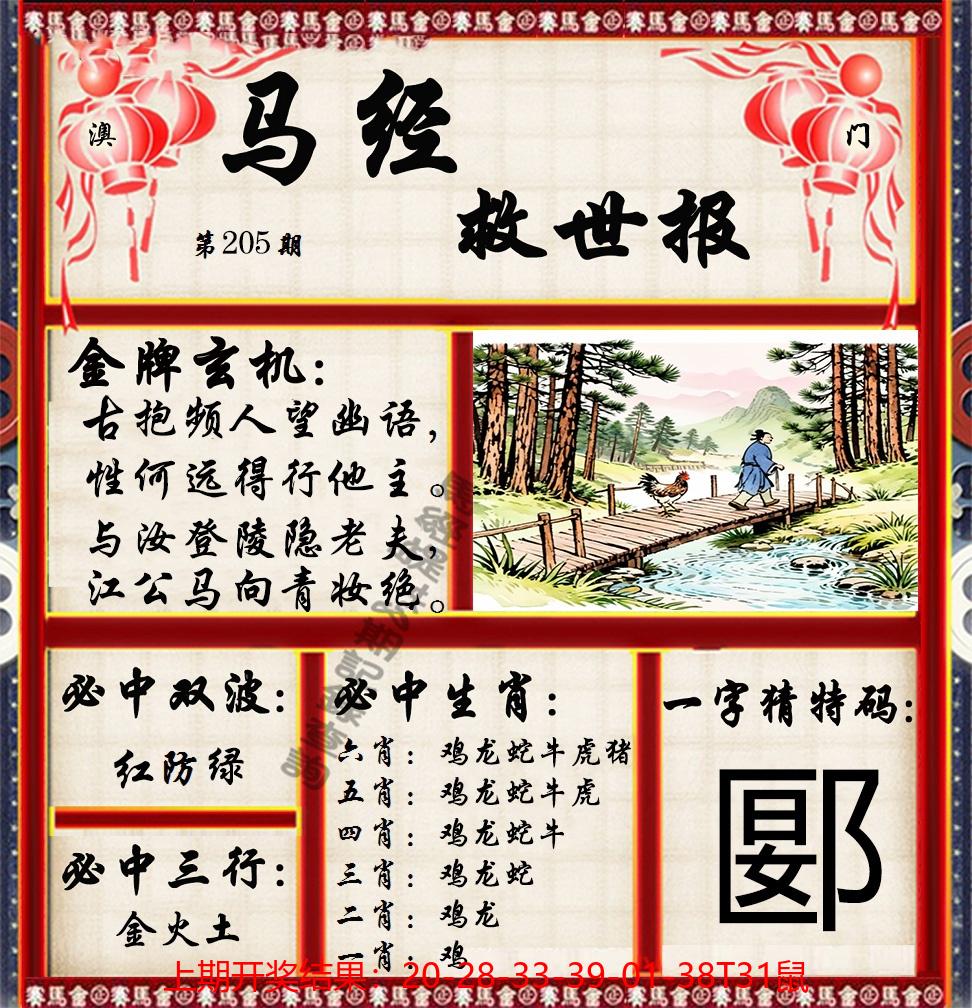 澳
门
马经
救世报
第205期
金牌玄机：
古抱频人望幽语，
性何远得行他主。
与汝登陵隐老夫，
江公马向青妆绝。
必中双波：
红防绿
必中三行：
金火土
必中生肖：
六肖：鸡龙蛇牛虎猪
五肖：鸡龙蛇牛虎
四肖：鸡龙蛇牛
三肖：鸡龙蛇
二肖：鸡龙
一肖：鸡
一字猜特码：
郾
上期开奖结果：20-28-33-39-01-38T31鼠